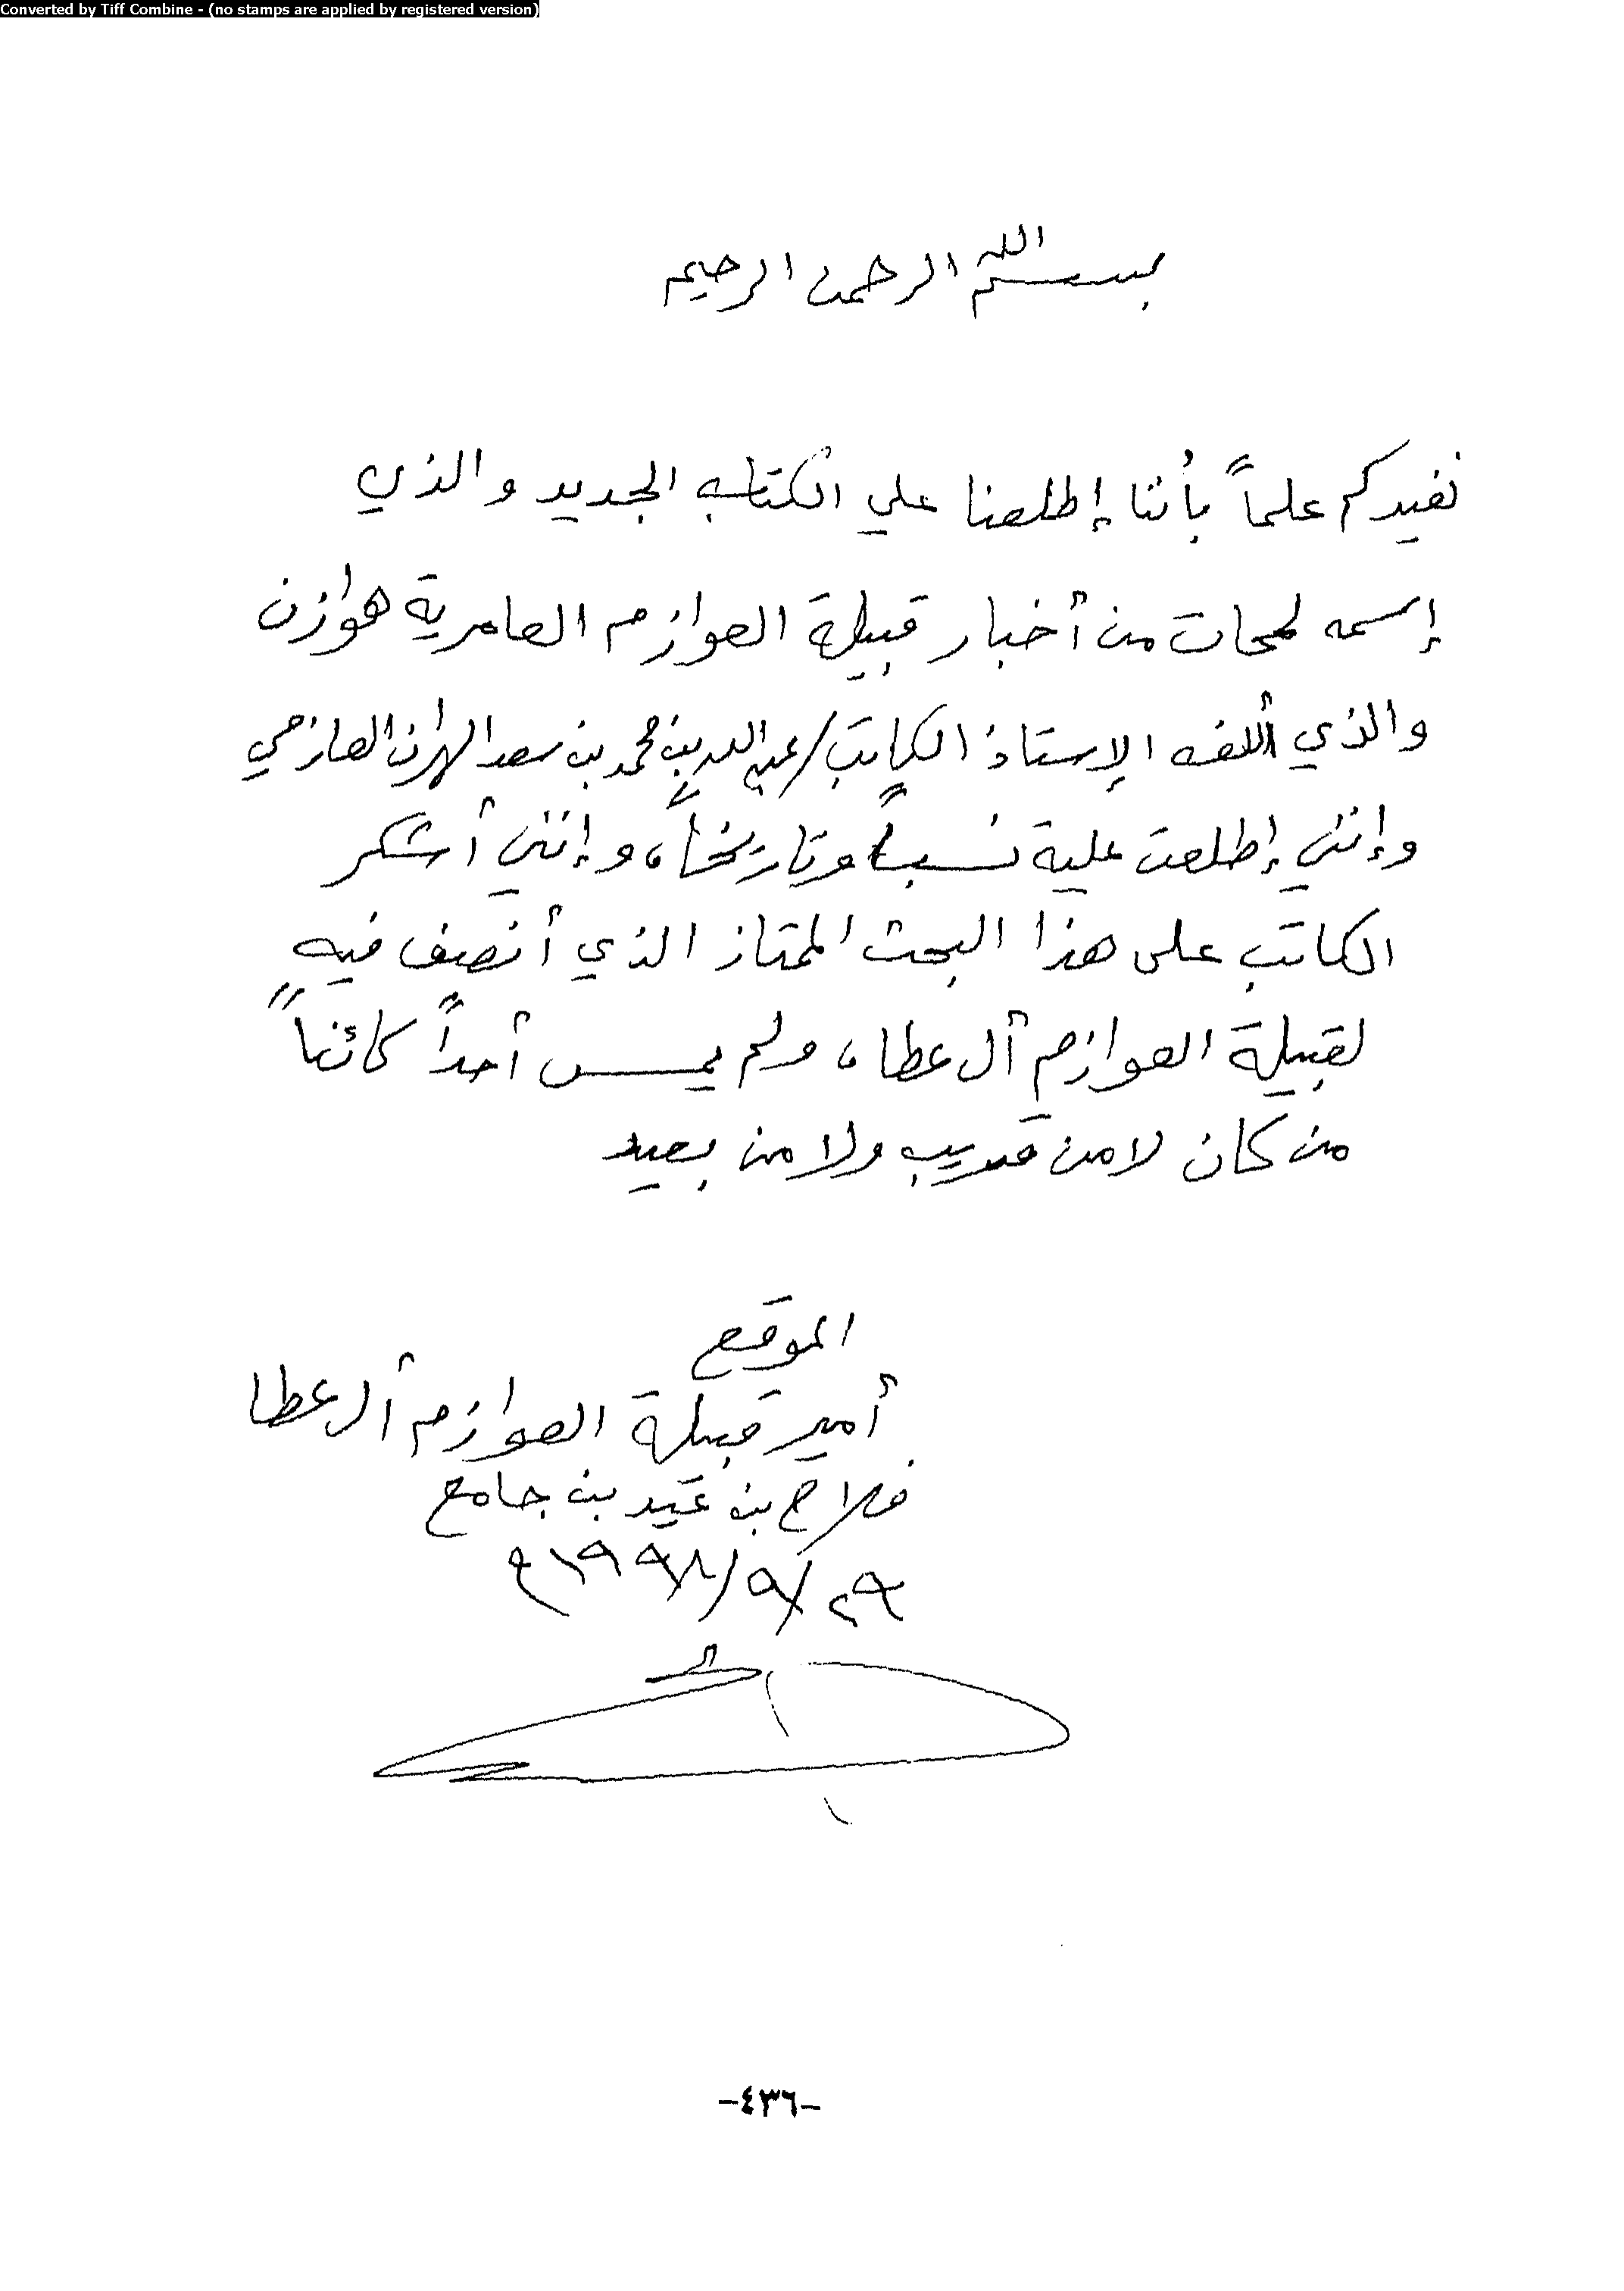 Converted by Tiff Combine - (no stamps are applied by registered version)
بسم الله الرحمن الرحيم
نفيدكم علماً بأننا إطلعنا علي الكتاب الجديد والذي
إسمه لمحات من أخبار قبيلة العوازم العامرية هوازن
والذي ألفه الإستاذ الكاتب/عبدالله بن محمد بن سعد العازمي
وإنني إطلعت علية نسباً وتاريخاً، وإنني أشكر
الكاتب على هذا البحث الممتاز الذي أنصف فيه
لقبيلة العوازم آل عطا، ولم يمس أحداً كائناً
من كان لا من قريب ولا من بعيد
الموقع
أمير قبيلة العوازم آل عطا
فلاح بن عيد بن جامع
٢٩/٩/١٩٩٨م
-٤٣٦-